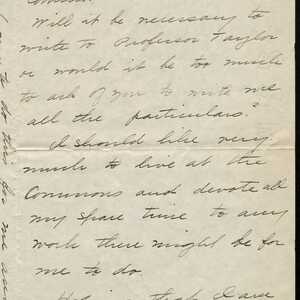 Will it be necessary to
write to Professor Taylor
or would it be too much
to ask of you to write me
all the particulars."
I should like very
much to live at the
Commons and devote all
my spare time to any
work there might be for
me to do.